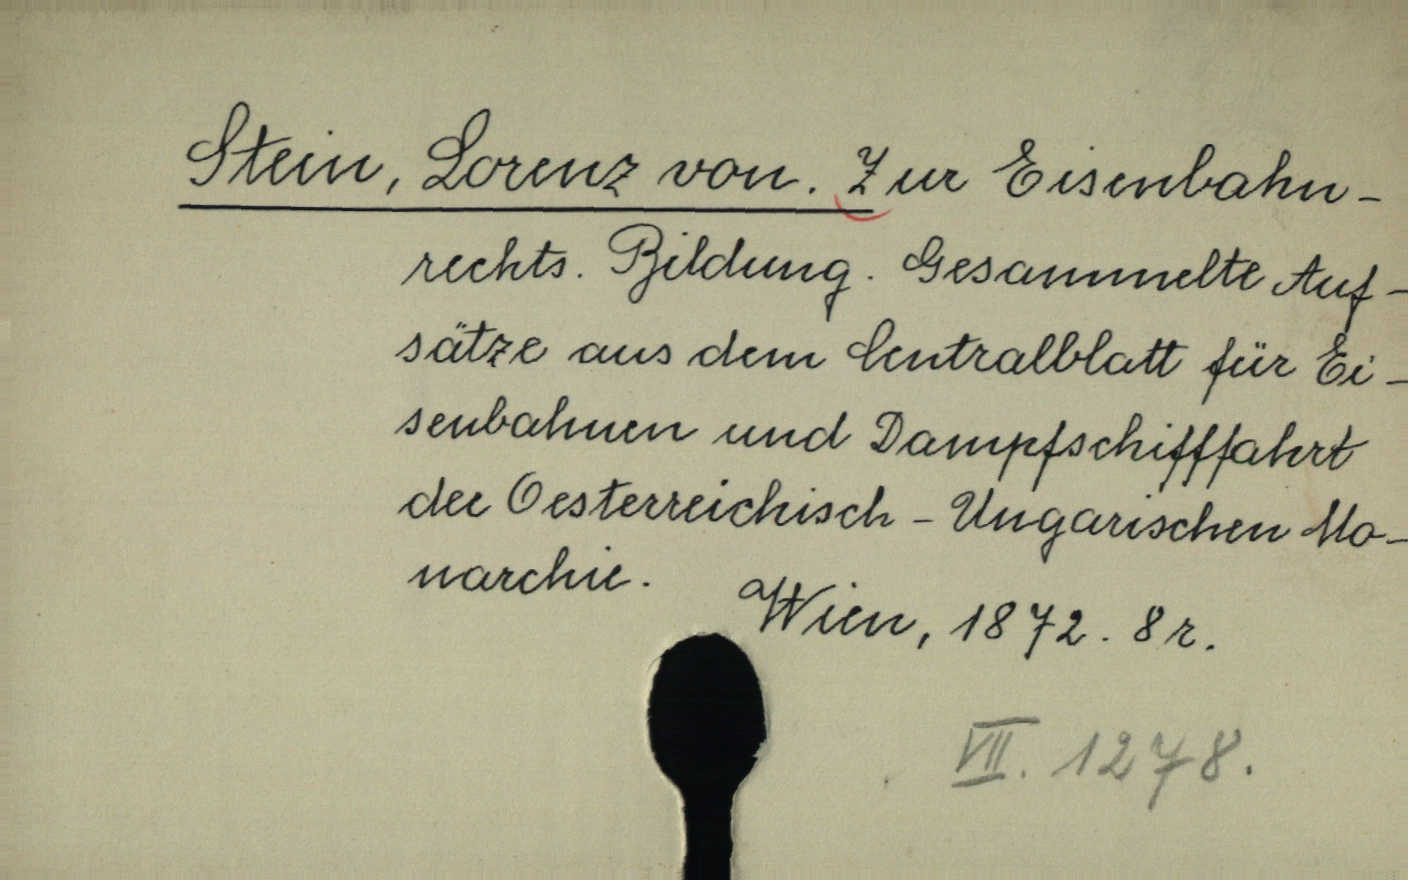 Stein, Lorenz von. Zur Eisenbahn-
rechts. Bildung. Gesammelte Auf-
sätze aus dem Centralblatt für Ei-
senbahnen und Dampfschifffahrt
der Oesterreichisch-Ungarischen Mo-
narchie.
Wien, 1872. 8r.
VII. 1278.